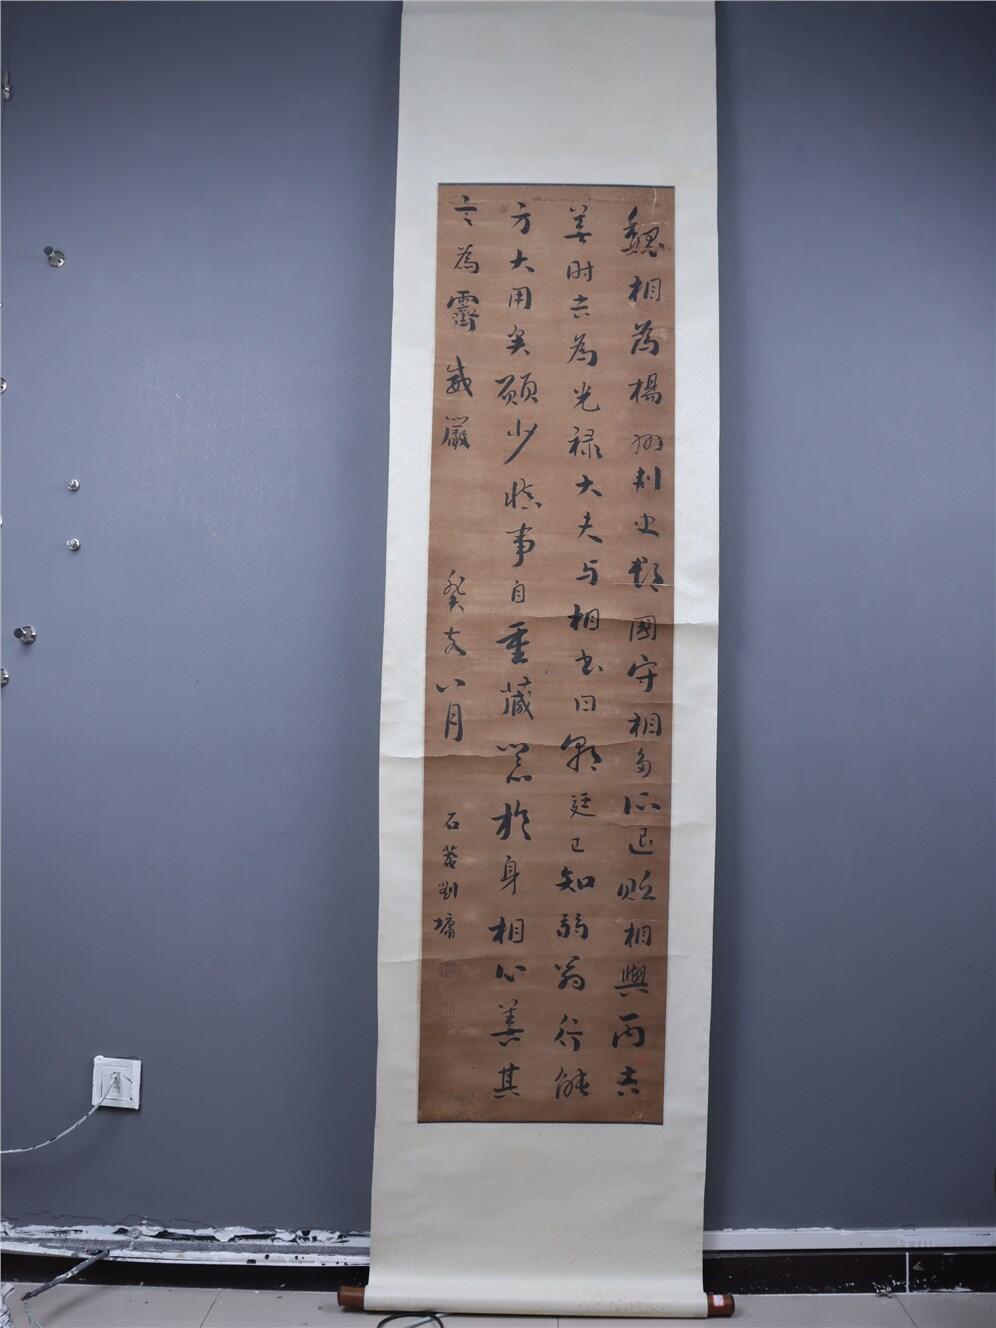 魏相為楊州刺史郡國守相多所退貶相與丙吉
善时吉為光禄大夫与相书曰朝廷已知弱翁行能
方大用矣願少慎事自重藏器於身相心善其
言為霽威嚴
癸亥八月
石菴劉墉